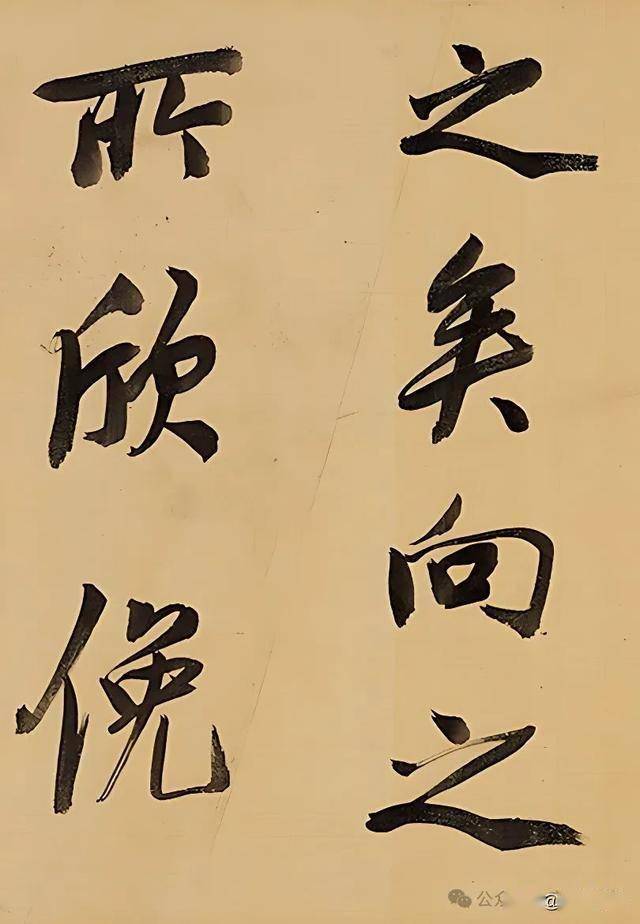 之矣向之
所欣俛
公众
@